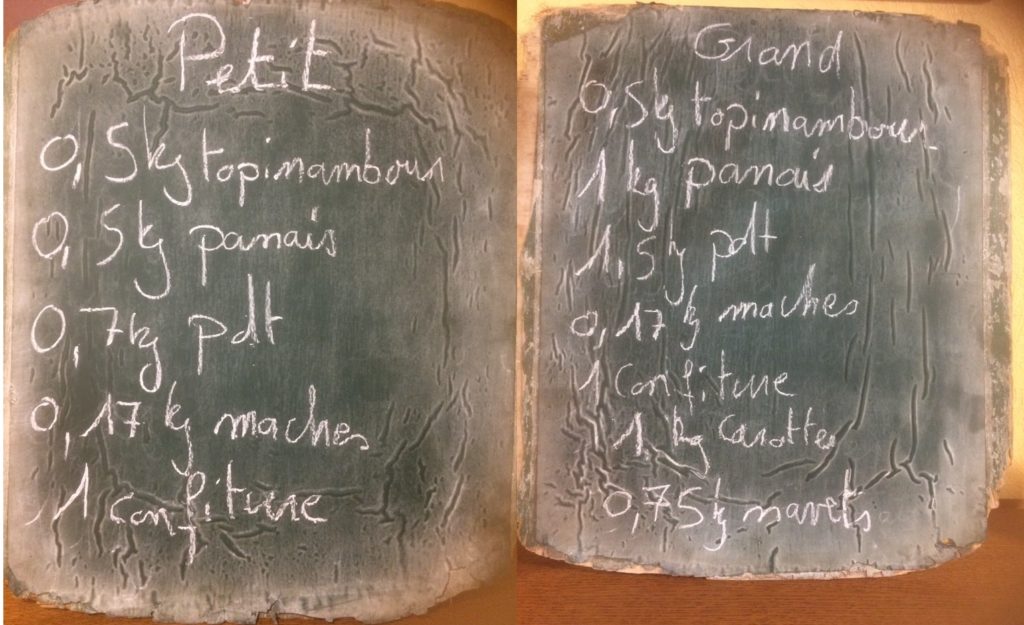 Petit
0,5kg topinambour
0,5kg panais
0,7kg pdt
0,17kg maches
1 confiture
Grand
0,5kg topinambours
1 kg panais
1,5kg pdt
0,17kg maches
1 confiture
1 kg carottes
0,75kg navets